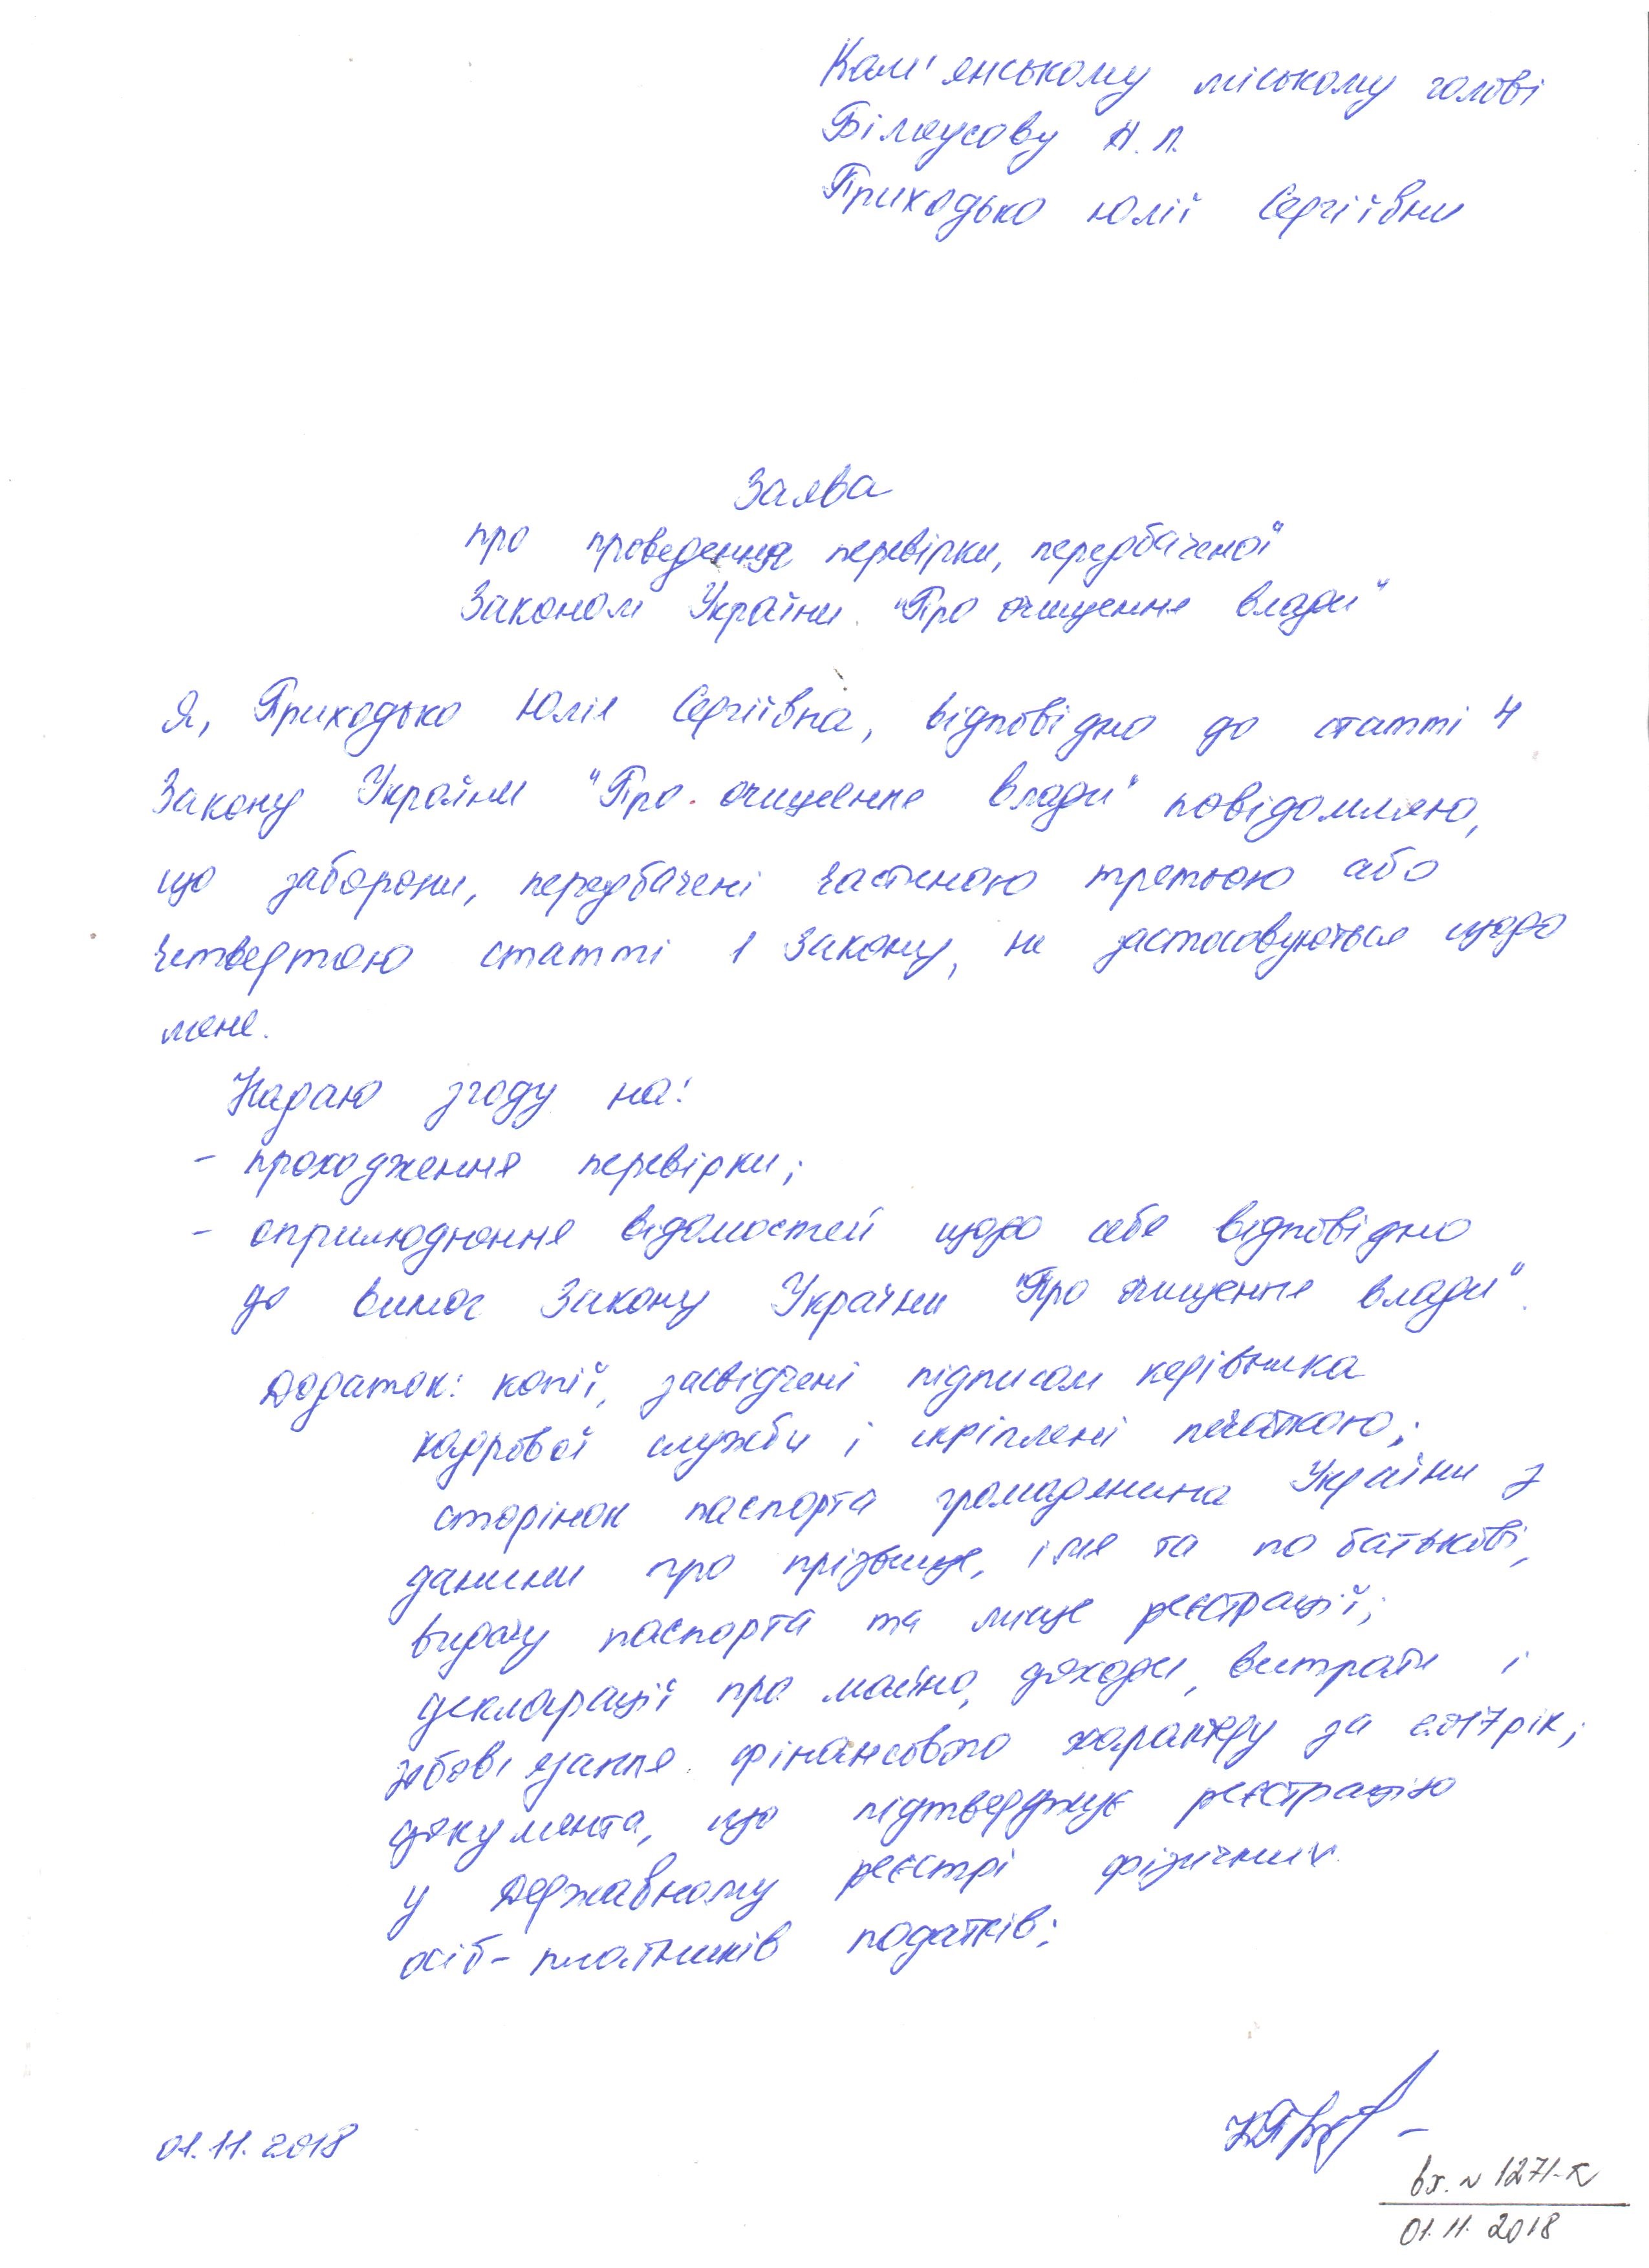 Кам'янському міському голові
Білоусову А.Л.
Приходько Юлії Сергіївни
Заява
про проведення перевірки, передбаченої
Законом України "Про очищення влади"
Я, Приходько Юлія Сергіївна, відповідно до статті 4
Закону України "Про очищення влади" повідомляю,
що заборони, передбачені частиною третьою або
четвертою статті 1 Закону, не застосовуються щодо
мене.
Надаю згоду на:
- проходження перевірки;
- оприлюднення відомостей щодо себе відповідно
до вимог Закону України "Про очищення влади".
Додаток: копії, засвідчені підписом керівника
кадрової служби і скріплені печаткою:
сторінок паспорта громадянина України з
даними про прізвище, ім'я та по батькові,
видачу паспорта та місце реєстрації;
декларації про майно, доходи, витрати і
зобов'язання фінансового характеру за 2017 рік;
документа, що підтверджує реєстрацію
у Державному реєстрі фізичних
осіб-платників податків;
01.11.2018
вх. № 1271-к
01.11.2018